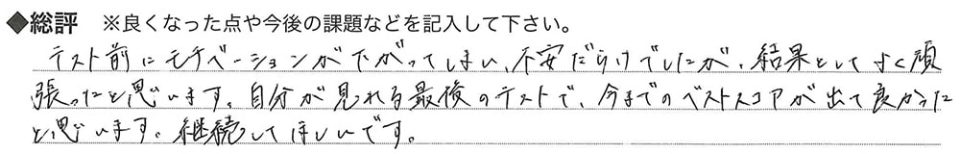 ◆総評 ※良くなった点や今後の課題などを記入して下さい。
テスト前にモチベーションが下がってしまい、不安だらけでしたが、結果としてよく頑
張ったと思います。自分が見れる最後のテストで、今までのベストスコアが出て良かった
と思います。継続してほしいです。